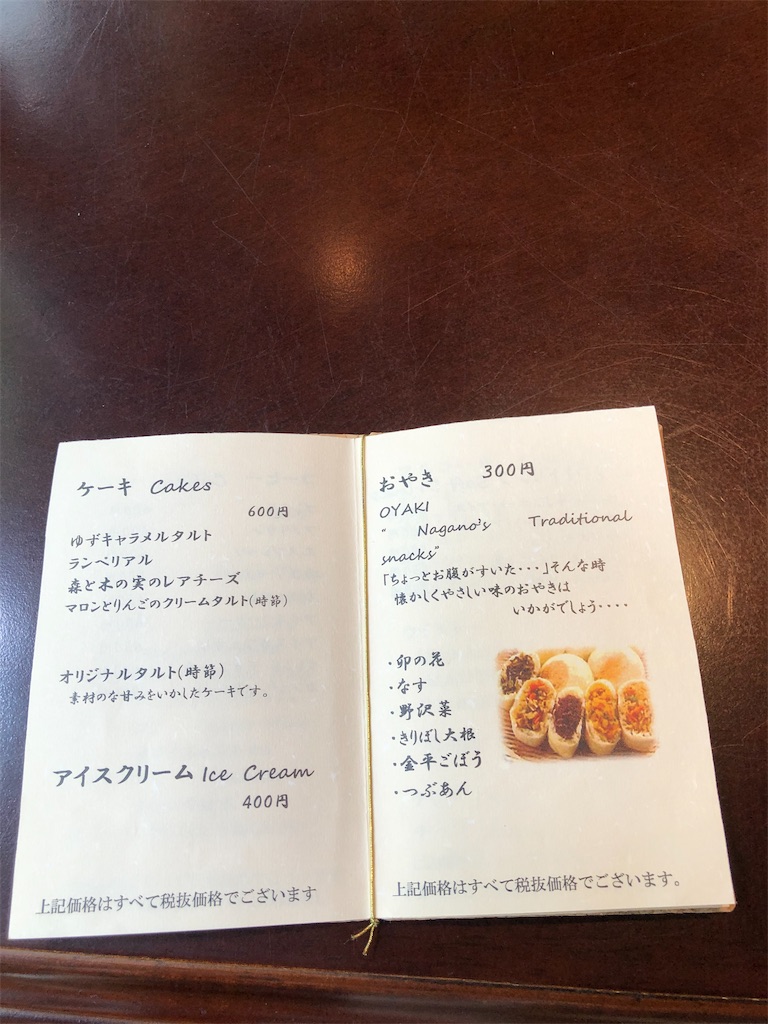 ケーキ Cakes
600円
ゆずキャラメルタルト
ランペリアル
森と木の実のレアチーズ
マロンとりんごのクリームタルト(時節)
オリジナルタルト(時節)
素材のな甘みをいかしたケーキです。
アイスクリーム Ice Cream
400円
上記価格はすべて税抜価格でございます
おやき 300円
OYAKI
" Nagano's Traditional
snacks"
「ちょっとお腹がすいた・・・」そんな時
懐かしくやさしい味のおやきは
いかがでしょう・・・・
・卯の花
・なす
・野沢菜
・きりぼし大根
・金平ごぼう
・つぶあん
上記価格はすべて税抜価格でございます。